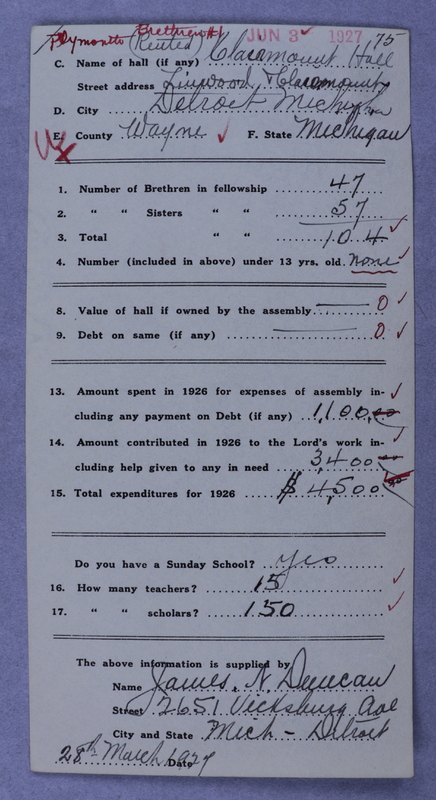 Plymouth Brethren #1 JUN 3 1927 75
(Rented)
C. Name of hall (if any) Clacamount Hall
Street address Linwood & Clacamount
D. City Detroit Michigan
E. County Wayne F. State Michigan
1. Number of Brethren in fellowship 47
2. " " Sisters " " 57
3. Total " " 104
4. Number (included in above) under 13 yrs. old. none
8. Value of hall if owned by the assembly 0
9. Debt on same (if any) 0
13. Amount spent in 1926 for expenses of assembly in-
cluding any payment on Debt (if any) 1,100.00
14. Amount contributed in 1926 to the Lord's work in-
cluding help given to any in need 3,400
15. Total expenditures for 1926 $ 4,500
Do you have a Sunday School? yes
16. How many teachers? 15
17. " " scholars? 150
The above information is supplied by
Name James. N. Duncan
Street 2651 Vicksburg Ave
City and State Mich - Detroit
28th March 1927 Date